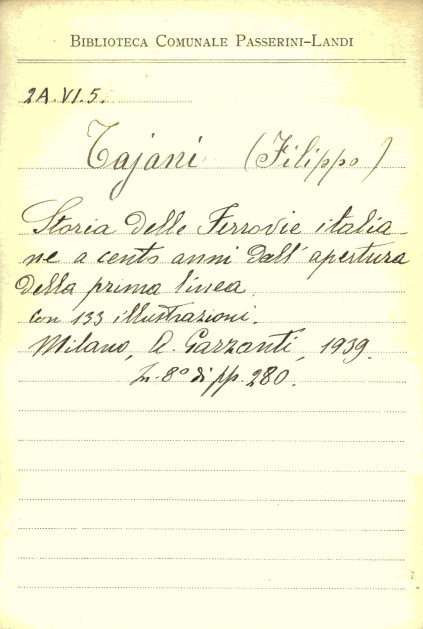 BIBLIOTECA COMUNALE PASSERINI-LANDI
2A.VI.5.
Tajani (Filippo)
Storia delle Ferrovie italia-
ne a cento anni dall'apertura
della prima linea.
con 133 illustrazioni.
Milano, A. Garzanti, 1939.
In-8° di pp. 280.